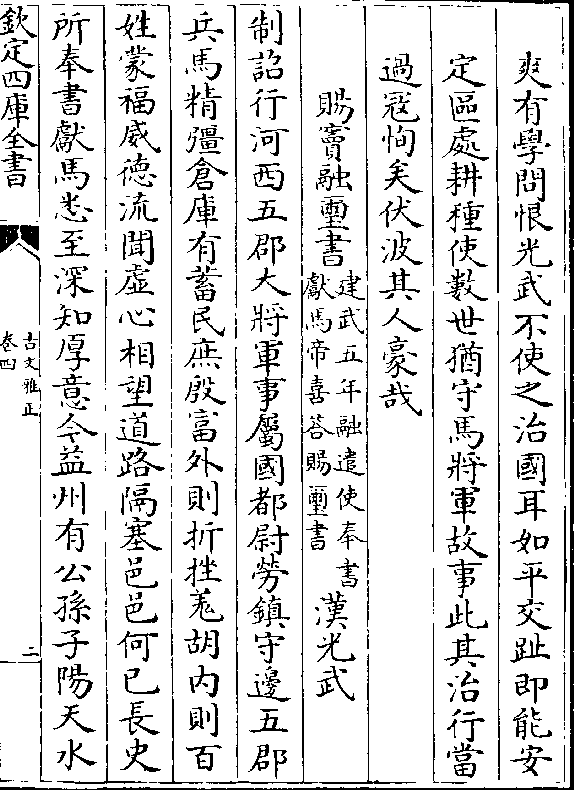 爽有學問恨光武不使之治國耳如平交趾即能安
定區處耕種使數世猶守馬將軍故事此其治行當
過冦恂矣伏波其人豪哉
賜竇融璽書建武五年融遣使奉書獻馬帝喜荅賜璽書漢光武
制詔行河西五郡大將軍事屬國都尉勞鎮守邊五郡
兵馬精彊倉庫有蓄民庶殷富外則折挫羌胡内則百
姓蒙福威德流聞虛心相望道路隔塞邑邑何已長史
所奉書獻馬悉至深知厚意今益州有公孫子陽天水
欽定四庫全書
古文雅正
卷四
二